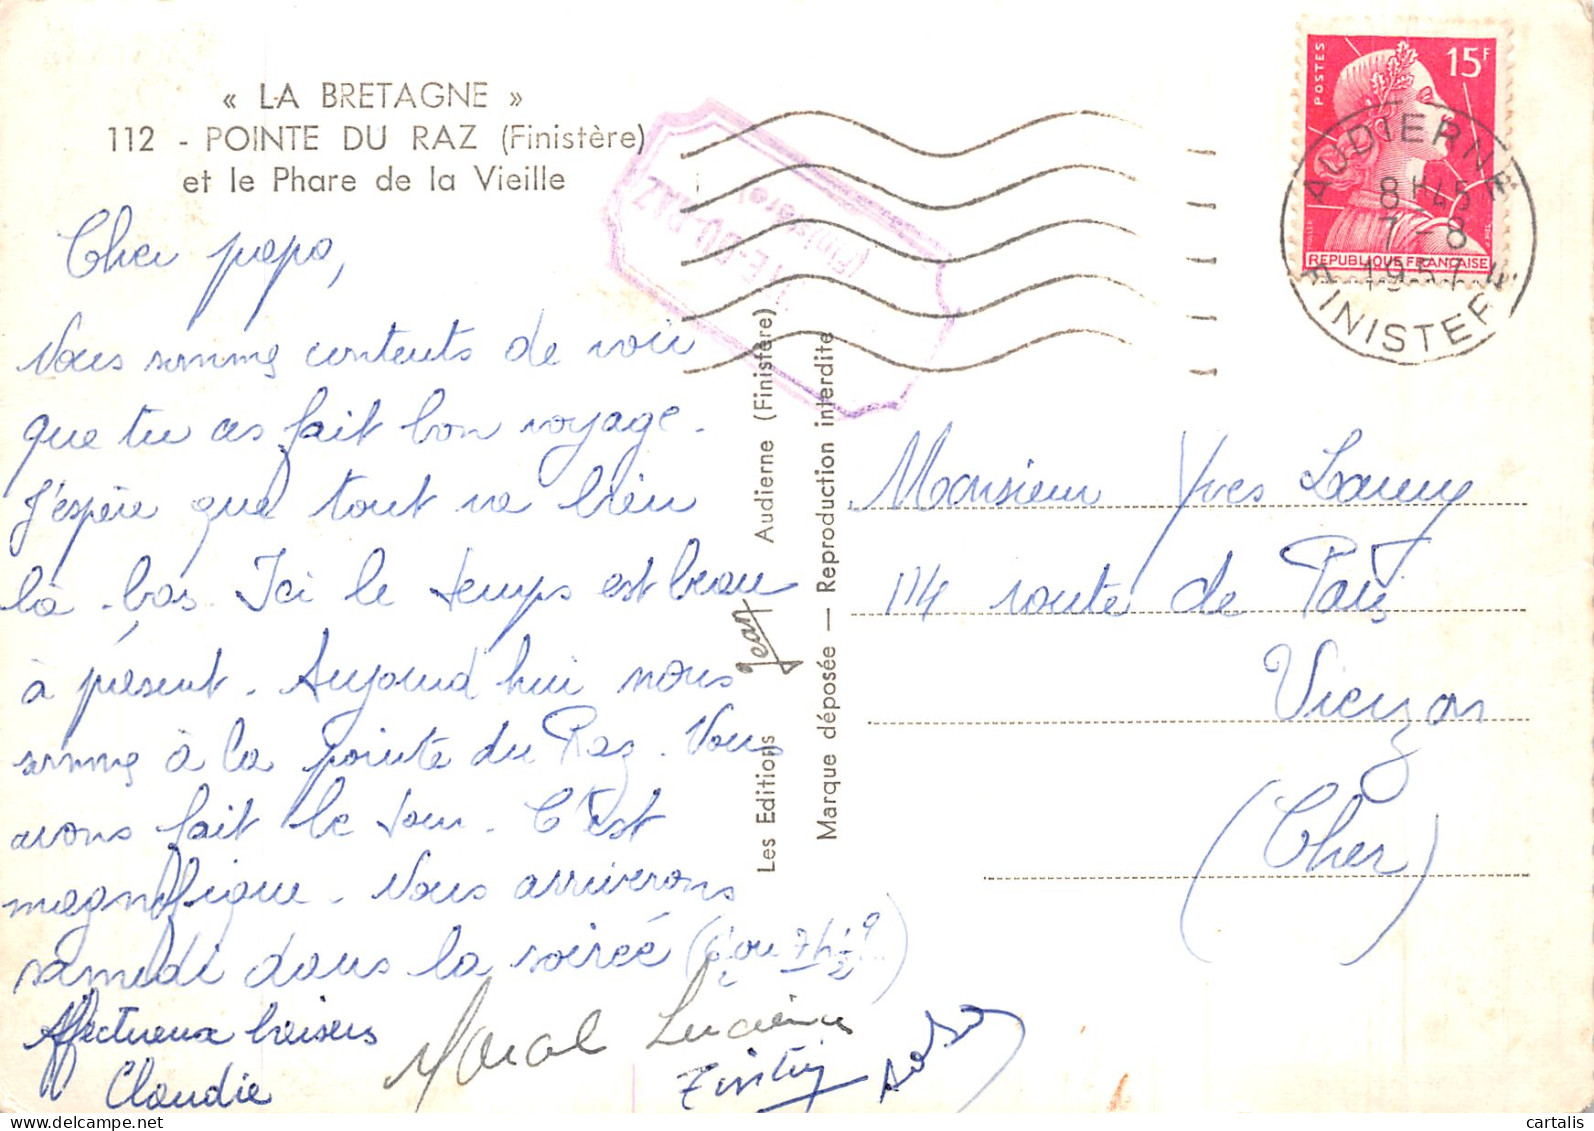 « LA BRETAGNE »
112 - POINTE DU RAZ (Finistère)
et le Phare de la Vieille
Cher papa,
Nous somme contents de voir
que tu as fait bon voyage.
J'espère que tout va bien
là-bas. Ici le temps est beau
à présent. Aujourd'hui nous
somme à la pointe du Raz. Nous
avons fait le tour. C'est
magnifique. Nous arriverons
samedi dans la soirée (6 ou 7h ½ ?..)
Affectueux baisers
Claudie
Marcel Lucienne
Les Editions Jean Audierne (Finistère)
Marque déposée — Reproduction interdite
TE-DU-RAZ
(Finistère)
POSTES
15F
REPUBLIQUE FRANÇAISE
AUDIERNE
8H45
7-8
1957
FINISTERE
Monsieur Yves
114 route de Paris
Vierzon
(Cher)
cartalis - delcampe.net